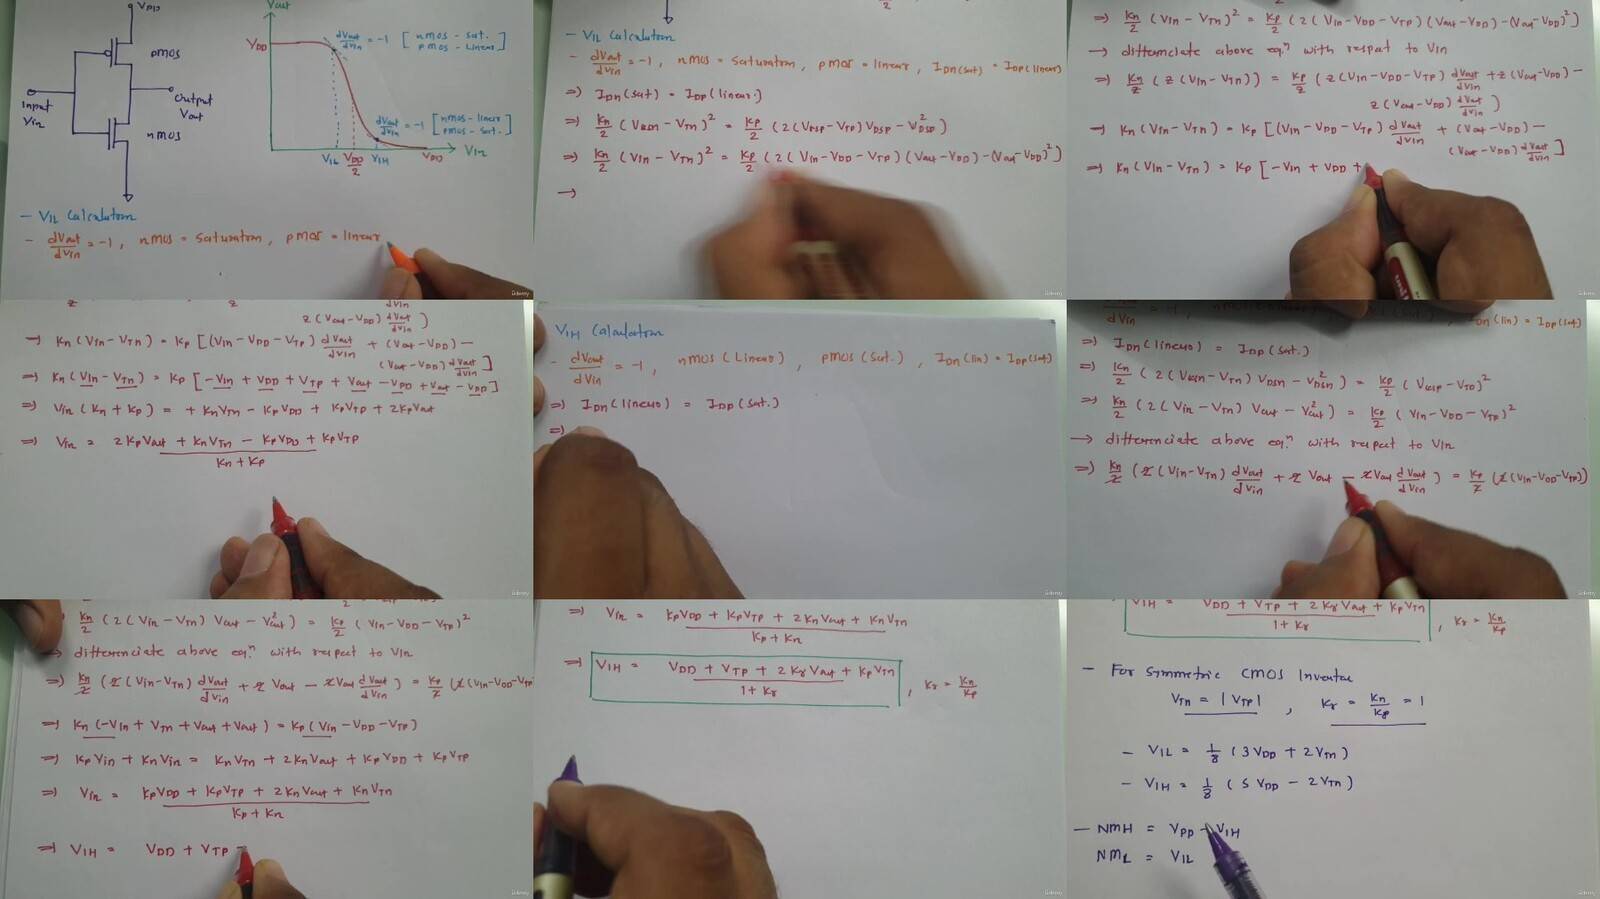 VDD
pmos
Input
Vin
Output
Vout
nmos
Vout
VDD
dVout/dVin = -1 [ nmos - sat.
pmos - Linear ]
dVout/dVin = -1 [ nmos - linear
pmos - sat. ]
VIL VDD/2 VIH VDD Vin
- VIL Calculation
- dVout/dVin = -1 , nmos = Saturation, pmos = linear
- VIL Calculation
- dVout/dVin = -1 , nmos = Saturation, pmos = linear, IDn(sat) = IDp(linear)
=> IDn(sat) = IDp(linear)
=> Kn/2 (VGSn - VTn)² = Kp/2 (2(VGSP - VTP) VDSP - V²DSP)
=> Kn/2 (Vin - VTn)² = Kp/2 (2(Vin - VDD - VTP)(Vout - VDD) - (Vout - VDD)²)
→
=> Kn/2 (Vin - VTn)² = Kp/2 (2(Vin - VDD - VTP)(Vout - VDD) - (Vout - VDD)²)
→ differenciate above eqⁿ with respect to Vin
=> Kn/2 (2(Vin - VTn)) = Kp/2 (2(Vin - VDD - VTP) dVout/dVin + 2(Vout - VDD) -
2(Vout - VDD) dVout/dVin )
→ Kn(Vin - VTn) = Kp [(Vin - VDD - VTP) dVout/dVin + (Vout - VDD) -
(Vout - VDD) dVout/dVin ]
=> Kn(Vin - VTn) = Kp [-Vin + VDD +
2 2 dVin
2(Vout - VDD) dVout/dVin )
→ Kn(Vin - VTn) = Kp [(Vin - VDD - VTP) dVout/dVin + (Vout - VDD) -
(Vout - VDD) dVout/dVin ]
=> Kn(Vin - VTn) = Kp [-Vin + VDD + VTP + Vout - VDD + Vout - VDD]
=> Vin(Kn + Kp) = + KnVTn - KpVDD + KpVTP + 2KpVout
=> Vin = 2KpVout + KnVTn - KpVDD + KpVTP / Kn + Kp
VIH Calculation
- dVout/dVin = -1 , nmos (Linear) , pmos (sat.) , IDn(lin) = IDp(sat)
=> IDn(linear) = IDp(sat.)
=>
dVin , IDn(lin) = IDp(sat)
=> IDn(linear) = IDp(sat.)
=> Kn/2 (2(VGSn - VTn) VDSn - V²DSn) = Kp/2 (VGSP - VTP)²
=> Kn/2 (2(Vin - VTn) Vout - V²out) = Kp/2 (Vin - VDD - VTP)²
→ differenciate above eqⁿ with respect to Vin
=> Kn/2 (2(Vin - VTn) dVout/dVin + 2 Vout - 2Vout dVout/dVin ) = Kp/2 (2(Vin - VDD - VTP))
=> Kn/2 (2(Vin - VTn) Vout - V²out) = Kp/2 (Vin - VDD - VTP)²
→ differenciate above eqⁿ with respect to Vin
=> Kn/2 (2(Vin - VTn) dVout/dVin + 2 Vout - 2Vout dVout/dVin ) = Kp/2 (2(Vin - VDD - VTP
=> Kn(-Vin + VTn + Vout + Vout) = Kp(Vin - VDD - VTP)
=> KpVin + KnVin = KnVTn + 2KnVout + KpVDD + KpVTP
=> Vin = KpVDD + KpVTP + 2KnVout + KnVTn / Kp + Kn
=> VIH = VDD + VTP
=> Vin = KpVDD + KpVTP + 2KnVout + KnVTn / Kp + Kn
=> VIH = VDD + VTP + 2KrVout + KrVTn / 1 + Kr , Kr = Kn/Kp
VIH = VDD + VTP + 2KrVout + KrVTn / 1 + Kr , Kr = Kn/Kp
- For Symmetric CMOS Inverter
VTn = |VTP| , Kr = Kn/Kp = 1
- VIL = 1/8 (3VDD + 2VTn)
- VIH = 1/8 (5VDD - 2VTn)
- NMH = VDD - VIH
NML = VIL
Udemy
Udemy
Udemy
Udemy
Udemy
Udemy
Udemy
Udemy
Udemy